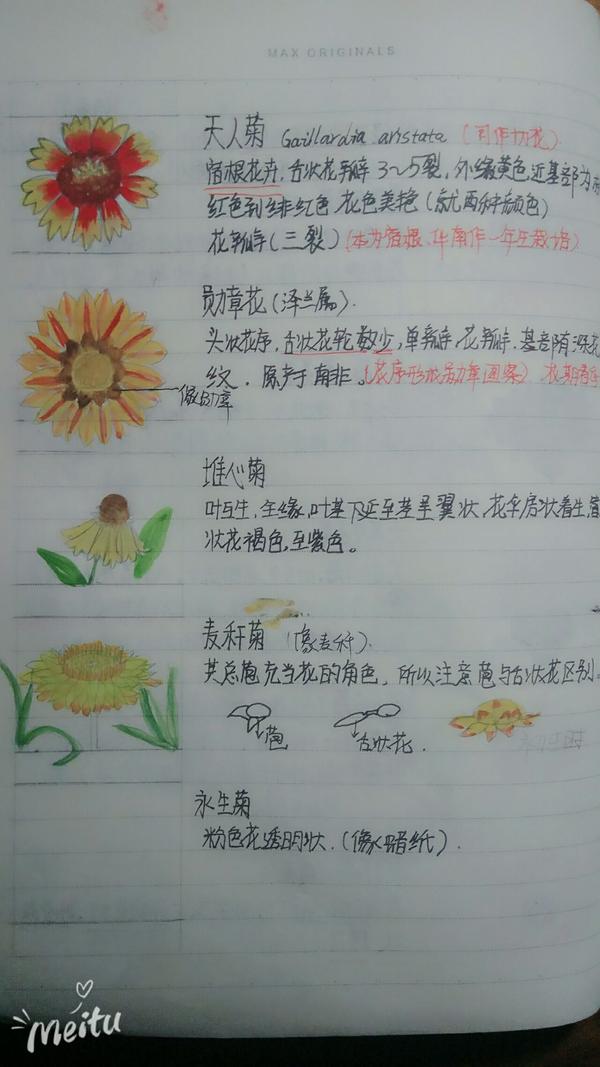 MAX ORIGINALS
天人菊 Gaillardia aristata (可作切花)
宿根花卉,舌状花瓣3~5裂,外缘黄色,近基部为
红色到绯红色,花色美艳(就两种颜色)
花瓣(三裂)(本为宿根,华南作一年生栽培)
勋章花(泽兰属).
头状花序,舌状花轮数少,单瓣,花瓣基部有深花
纹.原产于南非.(花序形成勋章图案)
做勋章
堆心菊
叶互生,全缘,叶基下延至茎呈翼状,花伞房状着生,管
状花褐色,至紫色。
麦秆菊 (像麦秆).
其总苞充当花的角色,所以注意苞与舌状花区别.
苞 舌状花.
永生菊
粉色花透明状.(像腊纸).
Meitu